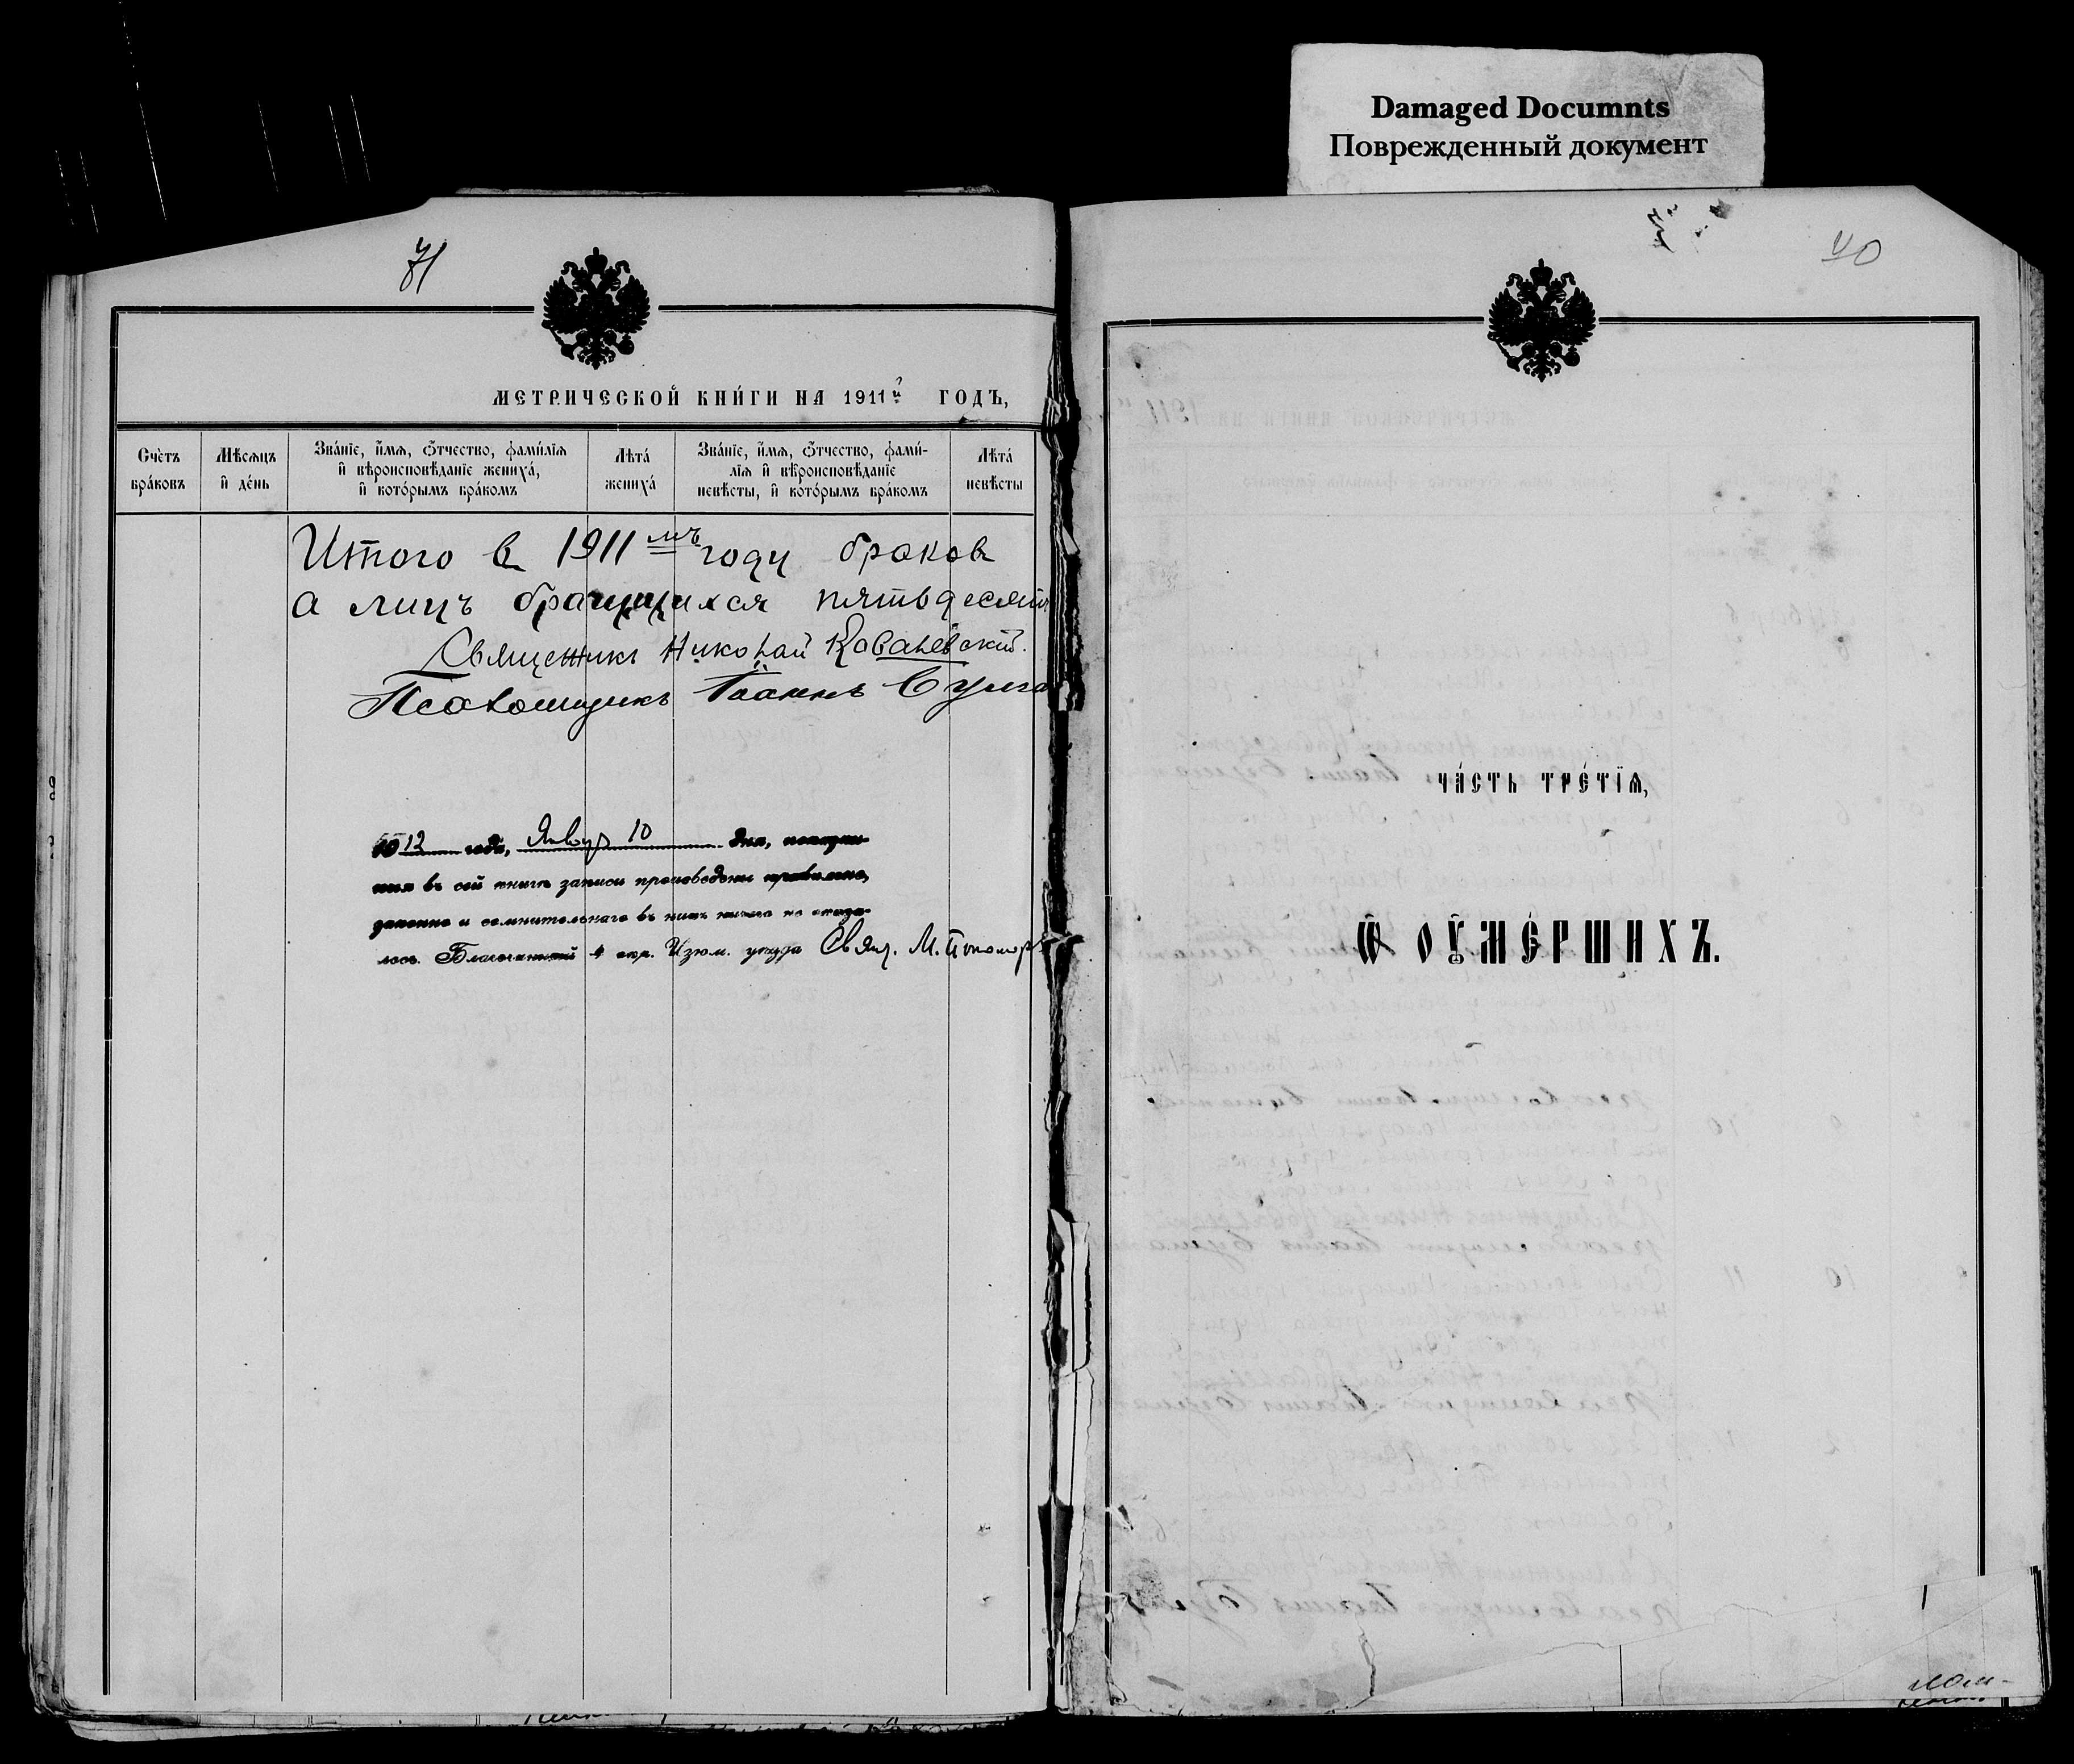 Damaged Documnts
Поврежденный документ
71
МЕТРИЧЕСКОЙ КНИ́ГИ НА 1911й ГОДЪ,
Сче́тъ бра́ковъ
Мѣ́сяцъ и҆ де́нь
Зва́нїе, и҆́мѧ, ѻ҆́тчество, фамѝлїѧ
и҆ вѣроисповѣ́данїе жениха́,
и҆ кото́рымъ бра́комъ
Лѣта́ жениха́
Зва́нїе, и҆́мѧ, ѻ҆́тчество, фами́-
лїѧ и҆ вѣроисповѣ́данїе
невѣ́сты, и҆ кото́рымъ бра́комъ
Лѣта́ невѣ́сты
Итого в 1911мъ году браков
а лицъ брачущихся пятьдесятъ
Священникъ Николай Ковалевскій.
Псаломщикъ Іоаннъ
1912 года, Январ 10 дня,
въ сей книгѣ записи произведены правильно,
и сомнительнаго въ нихъ ничего не оказа-
лось. Благочинный 4 окр. Изюм. уезда Свящ. М.
40
ЧА́СТЬ ТРЕ́ТЇѦ,
Ѽ ОУ҆МЕ́РШИХЪ.